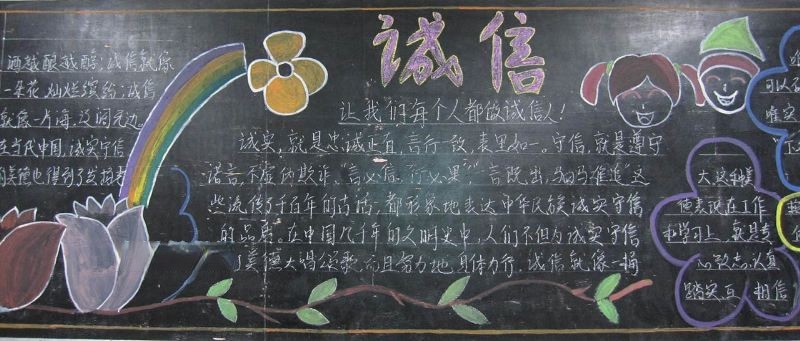 诚信
让我们每个人都做诚信人!
酒越酿越醇;诚信就像
一朵花,灿烂缤纷;诚信
就像一片海,及润无边。
在当代中国,诚实守信
的美德也得到了发扬
诚实,就是忠诚正直,言行一致,表里如一。守信,就是遵守
诺言,不虚伪欺诈。"言必信,行必果","言既出,驷马难追"这
些流传了千百年的古话,都形象地表达中华民族诚实守信
的品质。在中国几千年的文明史中,人们不但为诚实守信
美德大唱颂歌,而且努力地身体力行。诚信就像一桶
大这种美
德表现在工作
和学习上,就是专
心致志,认真
踏实,互相信
可以
唯实